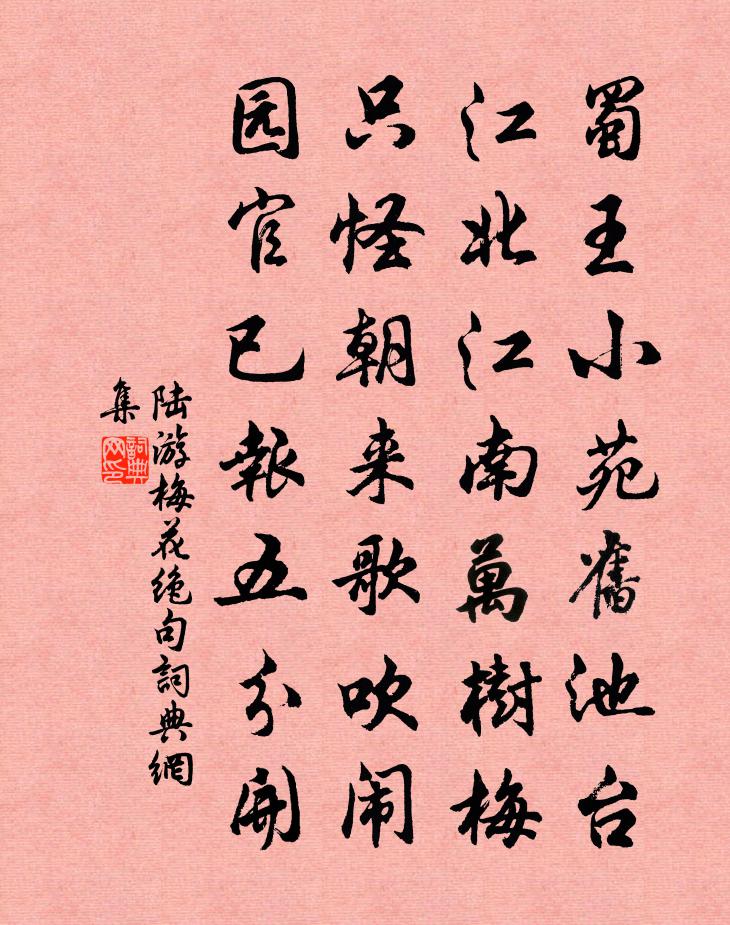 蜀王小苑舊池台
江北江南萬樹梅
只怪朝来歌吹闹
园官已報五分開
陆游梅花绝句詞典網
集
詞典網印